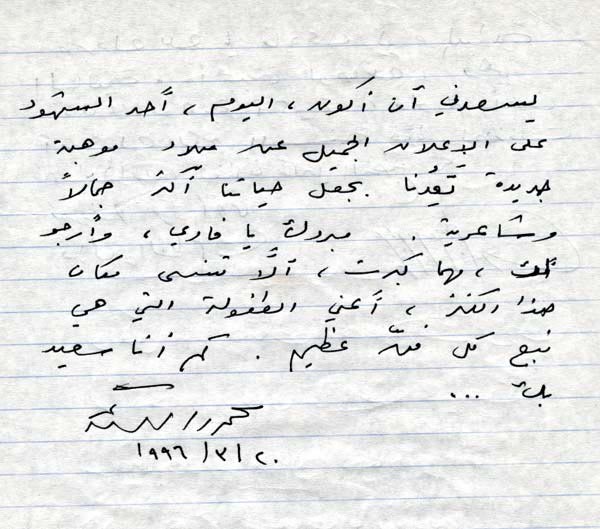 يسعدني أن أكون، اليوم، أحد الشهود
على الإعلان الجميل عن ميلاد موهبة
جديدة تَعِدُنا بجعل حياتنا أكثر جمالاً
وشاعرية. مبروك يا فادي، وأرجو
منك، مهما كبرت، ألّا تنسى مكان
هذا الكنز، أعني الطفولة التي هي
نبع كل فنّ عظيم. كم أنا سعيد
بك...
محمود درويش
٢٠/٣/١٩٩٦